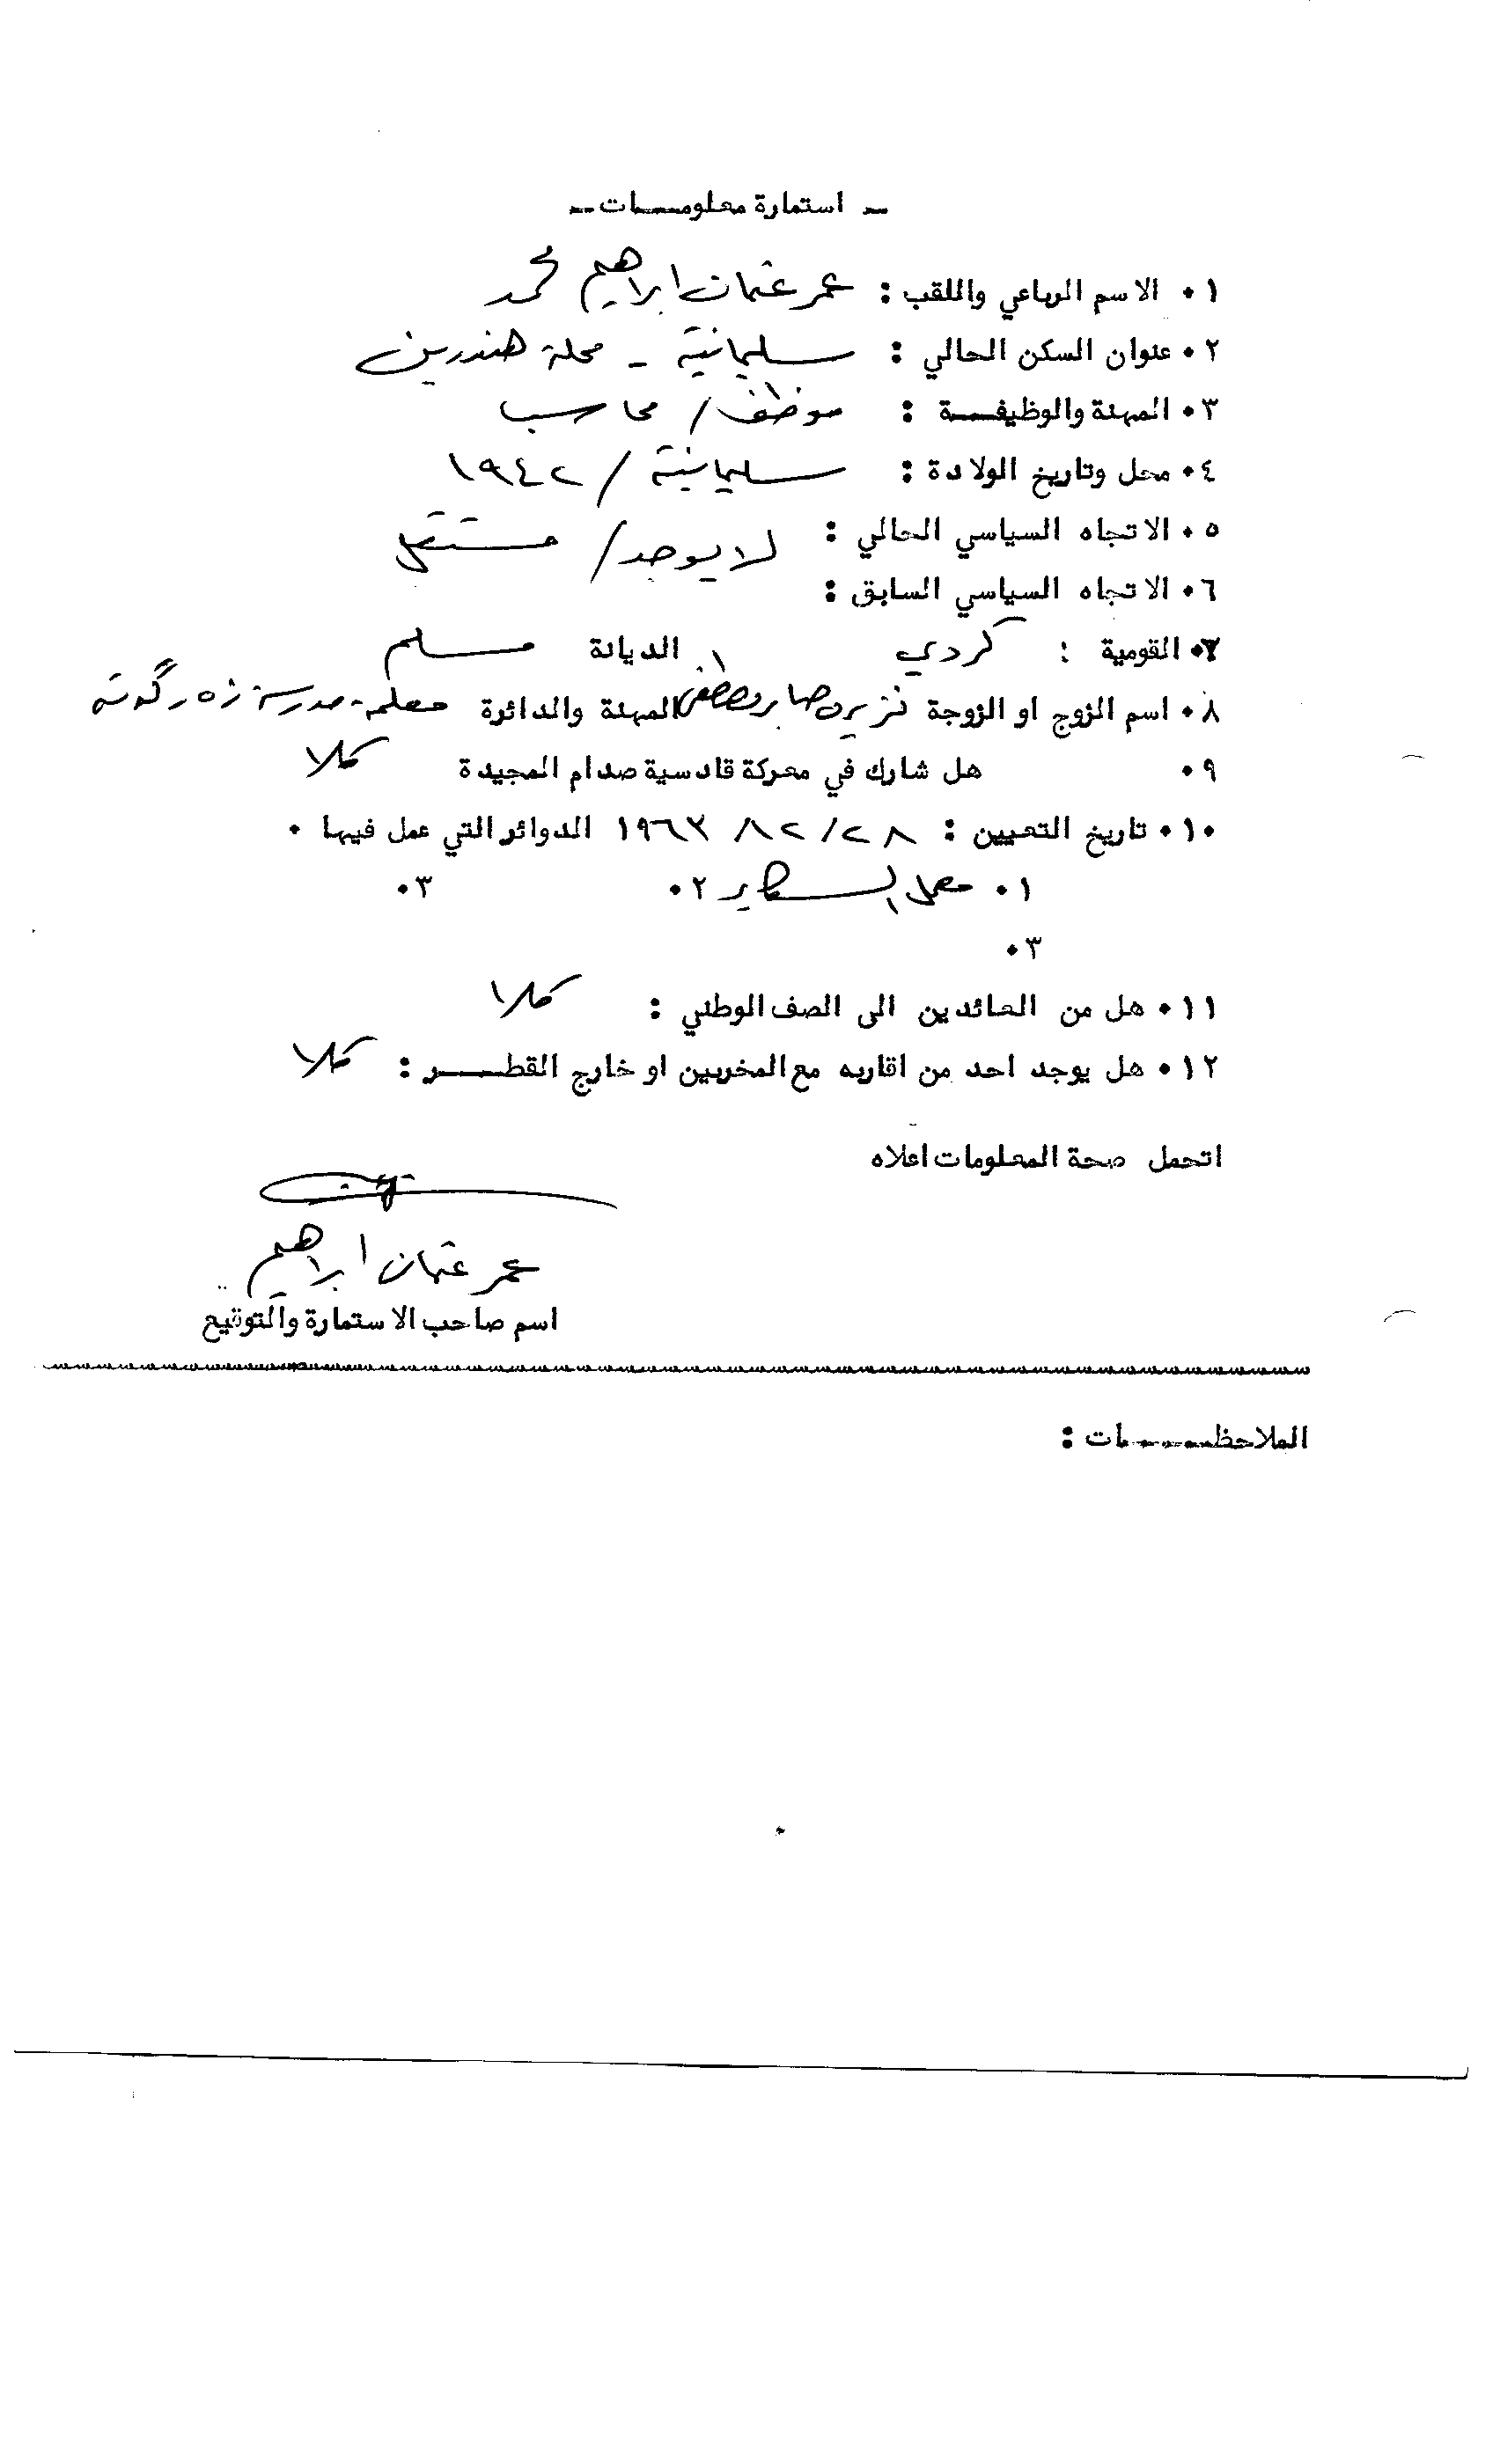 - استمارة معلومـــات -
١٠ الاسم الرباعي واللقب : عمر عثمان ابراهيم محمد
٢٠ عنوان السكن الحالي : سليمانية - محلة هندرين
٣٠ المهنة والوظيفـــة : موظف / محاسب
٤٠ محل وتاريخ الولادة : سليمانية / ١٩٤٢
٥٠ الاتجاه السياسي الحالي : لا يوجد / مستقل
٦٠ الاتجاه السياسي السابق :
٧٠ القومية : كردي الديانة مسلم
٨٠ اسم الزوج او الزوجة صابر مصطفى المهنة والدائرة معلمة - مدرسة زه رگوته
٩٠ هل شارك في معركة قادسية صدام المجيدة كلا
١٠٠ تاريخ التعيين : ٢٨ /١٢/ ١٩٦٣ الدوائر التي عمل فيها ٠
١٠ معمل السكاير ٢٠ ٣٠
٣٠
١١٠ هل من العائدين الى الصف الوطني : كلا
١٢٠ هل يوجد احد من اقاربه مع المخربين او خارج القطـــر : كلا
اتحمل صحة المعلومات اعلاه
عمر عثمان ابراهيم
اسم صاحب الاستمارة والتوقيع
الملاحظـــــات :